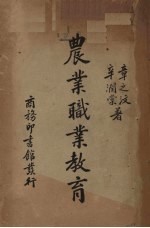 章之汶
辛潤棠著
農業職業教育
商務印書館發行